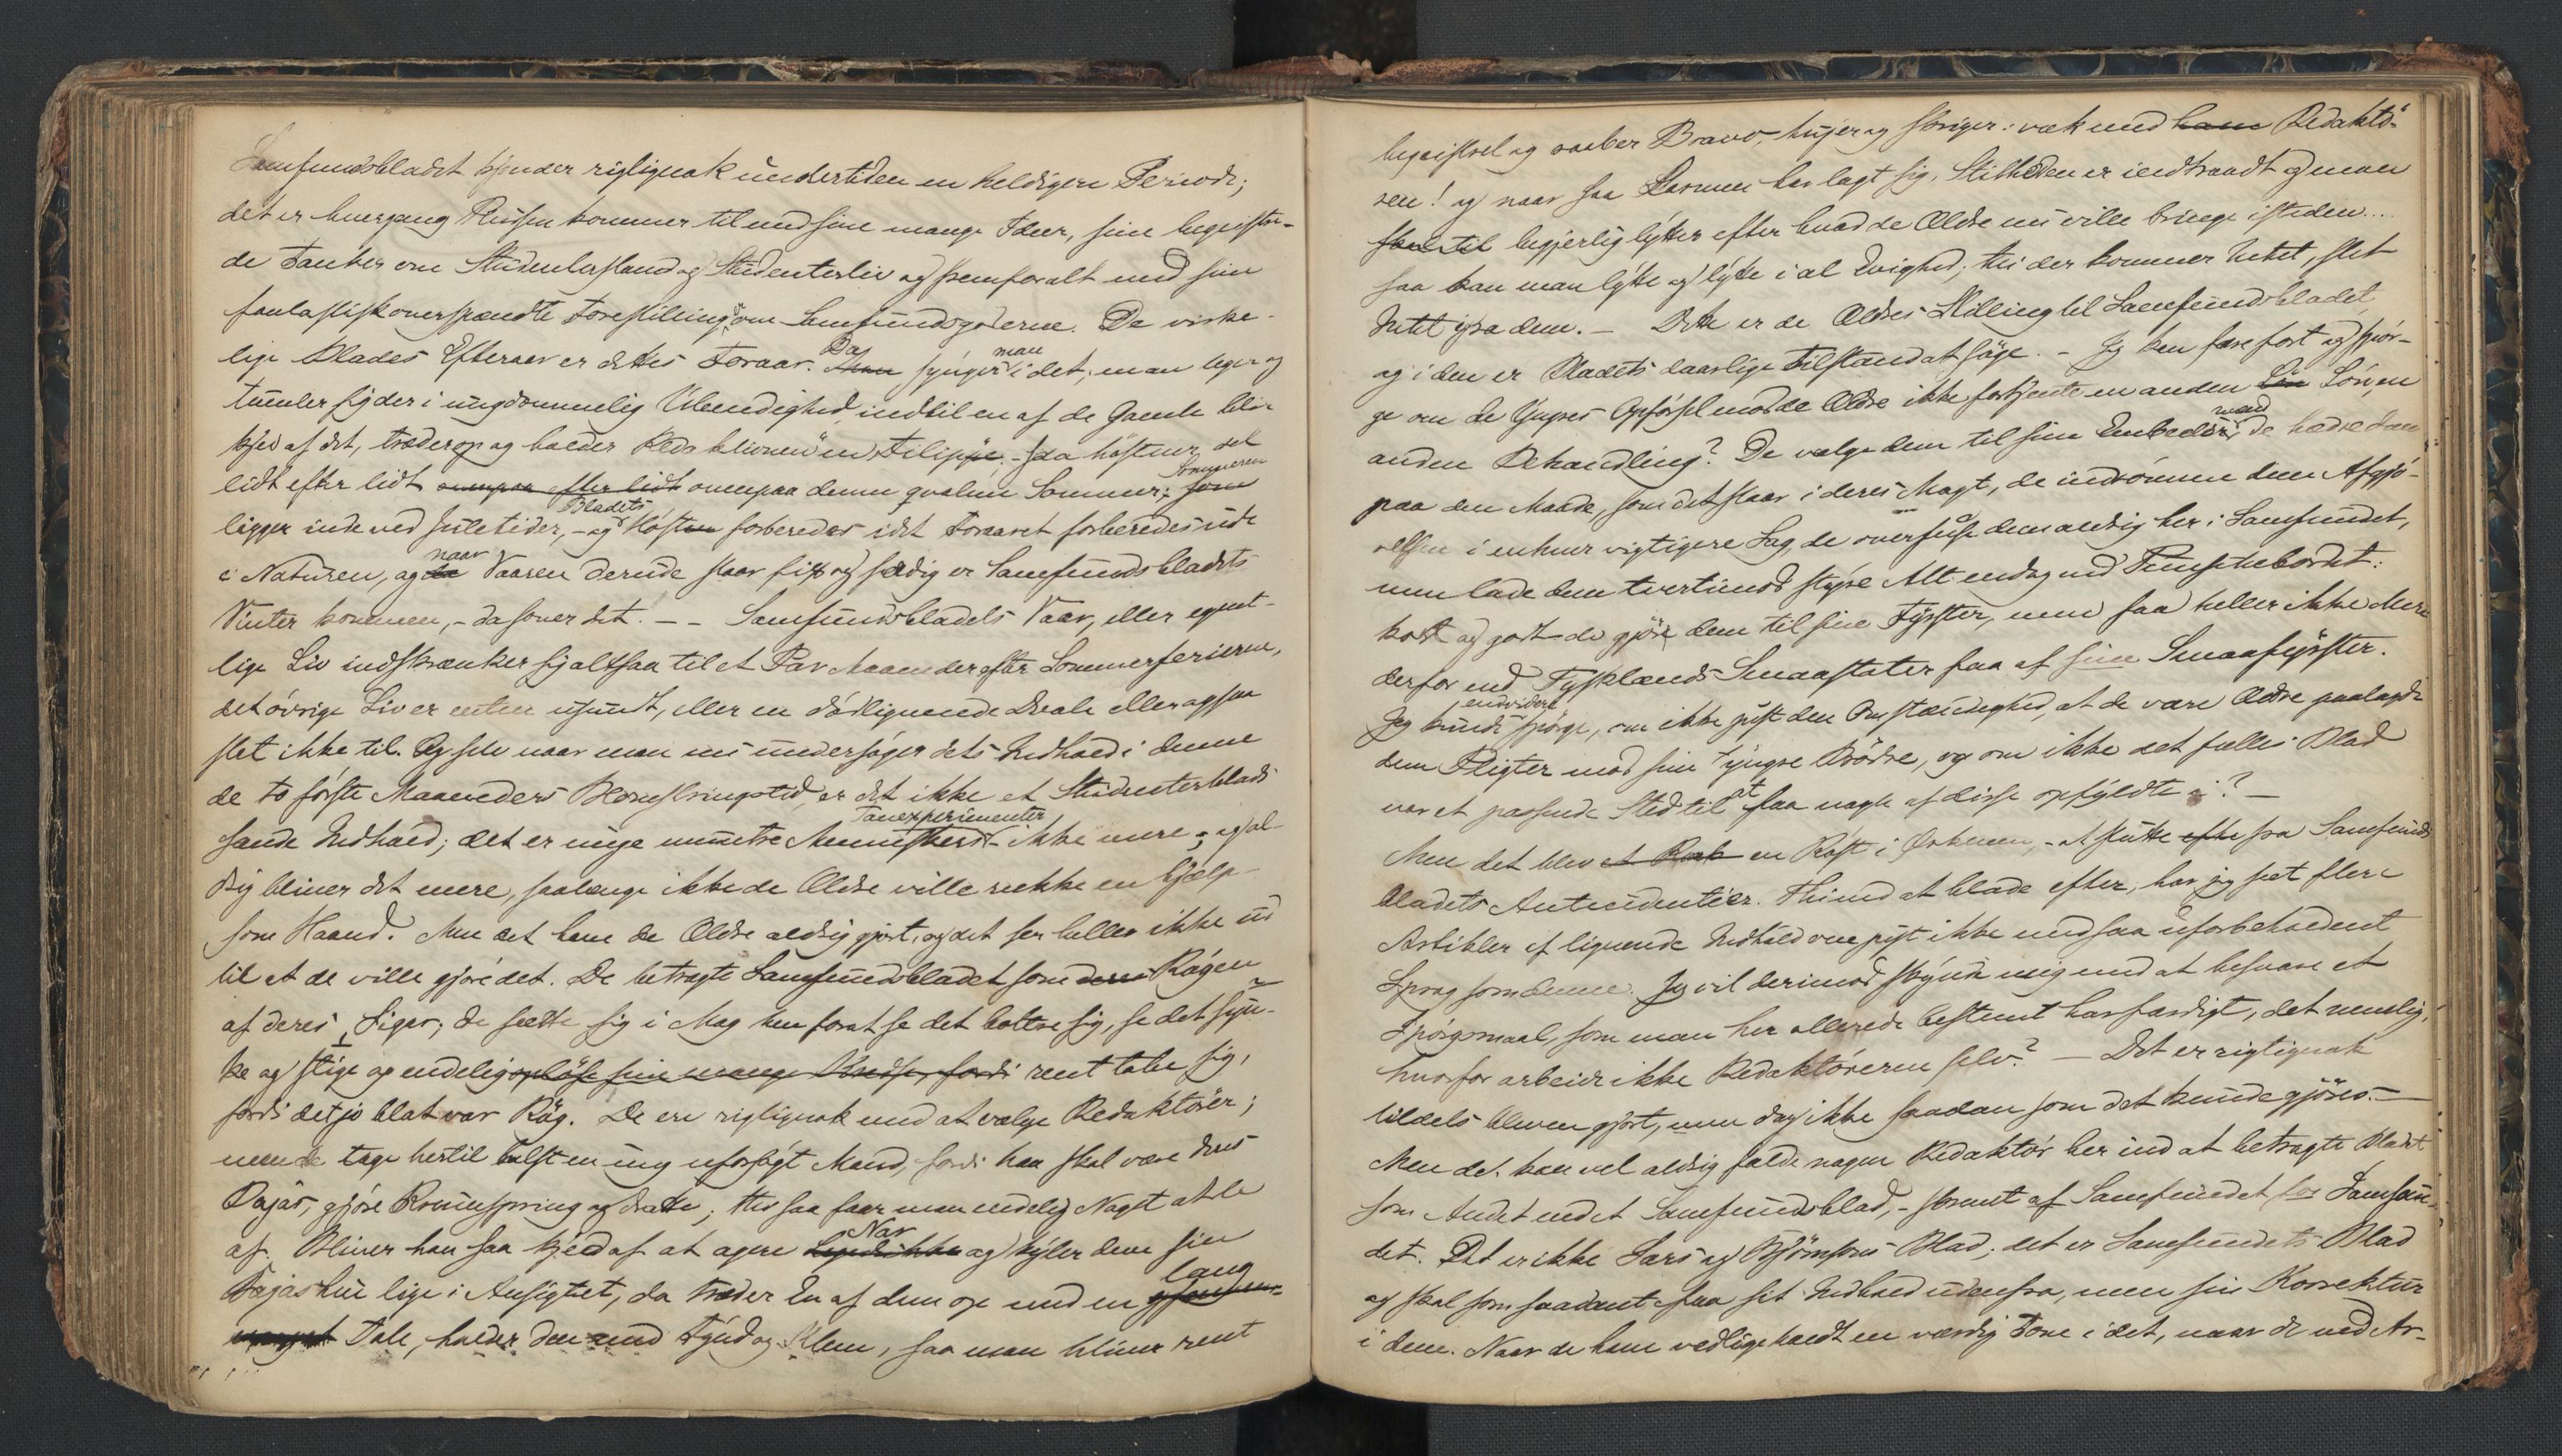 Samfundsbladet kjender rigtignok undertiden en heldigere Periode;
det er hvergang Russen kommer til med sine mange Ideer, sine begeistre-
de Tanker om Studenterstand og Studenterliv og fremforalt med sin
fantastisk overspændte Forestilling om Samfundsgoderne. De virke-
lige Blades Efteraar er dettes Foraar. Da synger man i det, man leger og
tumler sig der i ungdommelig Ubendighed, indtil en af de Gamle bliv
kjed af det, træder op og holder Redaktionen en Filippje. - Ja høstner det
lidt efter lidt ovenpaa efter lidt ovenpaa denne qvalme Sommer; Sommeren
ligger inde ved Juletider, - og Bladets Høst forberedes idet Foraaret forberedes ude
i Naturen, og naar Vaaren derude staar fix og færdig er Samfundsbladets
Vinter kommen, - da sover det. - - Samfundsbladets Vaar, eller egent-
lige Liv indskrænker sig altsaa til et Par Maaneder efter Sommerferierne,
det øvrige Liv er enten usundt, eller en dødlignende Dvale eller ogsaa
slet ikke til. Og selv naar man nu undersøger dets Indhold i denne
de to første Maaneders Blomstringstid, er det ikke et Studenterblads
sande Indhold; det er unge muntre Menneskers Tanexperimenter - ikke mere; og al-
drig bliver det mere, saalænge ikke de Ældre ville række en hjælp-
som Haand. Men det have de Ældre aldrig gjort, og det ser heller ikke ud
til at de ville gjøre det. De betragte Samfundsbladet som Røgen
af deres Sigar; de sætte sig i Mag hen for at se det boltre sig, se det syn-
ke og stige og endelig opløse sine mange Kredse, fordi rent tabe sig,
fordi det jo blot var Røg. De ere rigtignok med at vælge Redaktører;
men de tage hertil helst en ung uforsøgt Mand, fordi han skal være deres
Bajas, gjøre Krumspring og dratte; thi saa faar man endelig Noget at le
af. Bliver han saa kjed af at agere Nar og kyler dem sin
Bajashue lige i Ansigtet, da træder En af dem op med en lang
Tale, holder den med Fynd og Klem, saa man bliver rent
begeistret og raaber Bravo, hujer og skriger: væk med ham Redaktø-
ren! og naar saa Larmen har lagt sig, Stilheden er indtraadt og man
skal til begjerlig lytter efter hvad de Ældre nu ville bringe isteden....
saa kan man lytte og lytte i al Evighed; thi der kommer Intet, slet
Intet ifra dem. - Dette er de Ældres Stilling til Samfundsbladet,
og i den er Bladets daarlige Tilstand at søge. - Jeg kan fare fort og spør-
ge om de Yngres Opførsel mod de Ældre ikke fortjente en anden Løn, en
anden Behandling? De vælge dem til sine Embedsmænd, de hædre dem
paa den Maade, som det staar i deres Magt, de indrømme dem Afgjø-
relsen i enhver vigtigere Sag, de overfuse dem aldrig her i Samfundet,
men lade dem tvertimod styre Alt endog ved Punschebordet:
kort og godt de gjøre dem til sine Fyrster, men faa heller ikke Mere
derfor end Tysklands Smaastater faa af sine Smaafyrster.
Jeg kunde endvidere spørge, om ikke just den Omstændighed, at de vare Ældre paalagde
dem Pligter mod sine yngre Brødre, og om ikke det fælles Blad
var et passende Sted til at faa nogle af disse opfyldte i? -
Men det blev et Raab en Røst i Ørkenen, - at slutte efter fra Samfunds
bladets Antecedentier. Thi ved at blade efter, har jeg seet flere
Artikler af lignende Indhold om just ikke med saa uforbeholdent
Sprog som denne. Jeg vil derimod skynde mig med at besvare et
Spørgsmaal, som man her allerede bestemt har færdigt, det nemlig,
hvorfor arbeider ikke Redaktørerne selv? - Det er rigtignok
tildels bleven gjort, men dog ikke saadan som det kunde gjøres. -
Men det kan vel aldrig falde nogen Redaktør her ind at betragte Bladet
som Andet end et Samfundsblad, - skrevet af Samfundet for Samfun-
det. Det er ikke Lars og Bjørnsons Blad; det er Samfundets Blad
og skal som saadant faa sit Indhold udenfra, men sin Korrektur
i dem. Naar de have vedligeholdt en værdig Tone i det, naar de ved Ar-